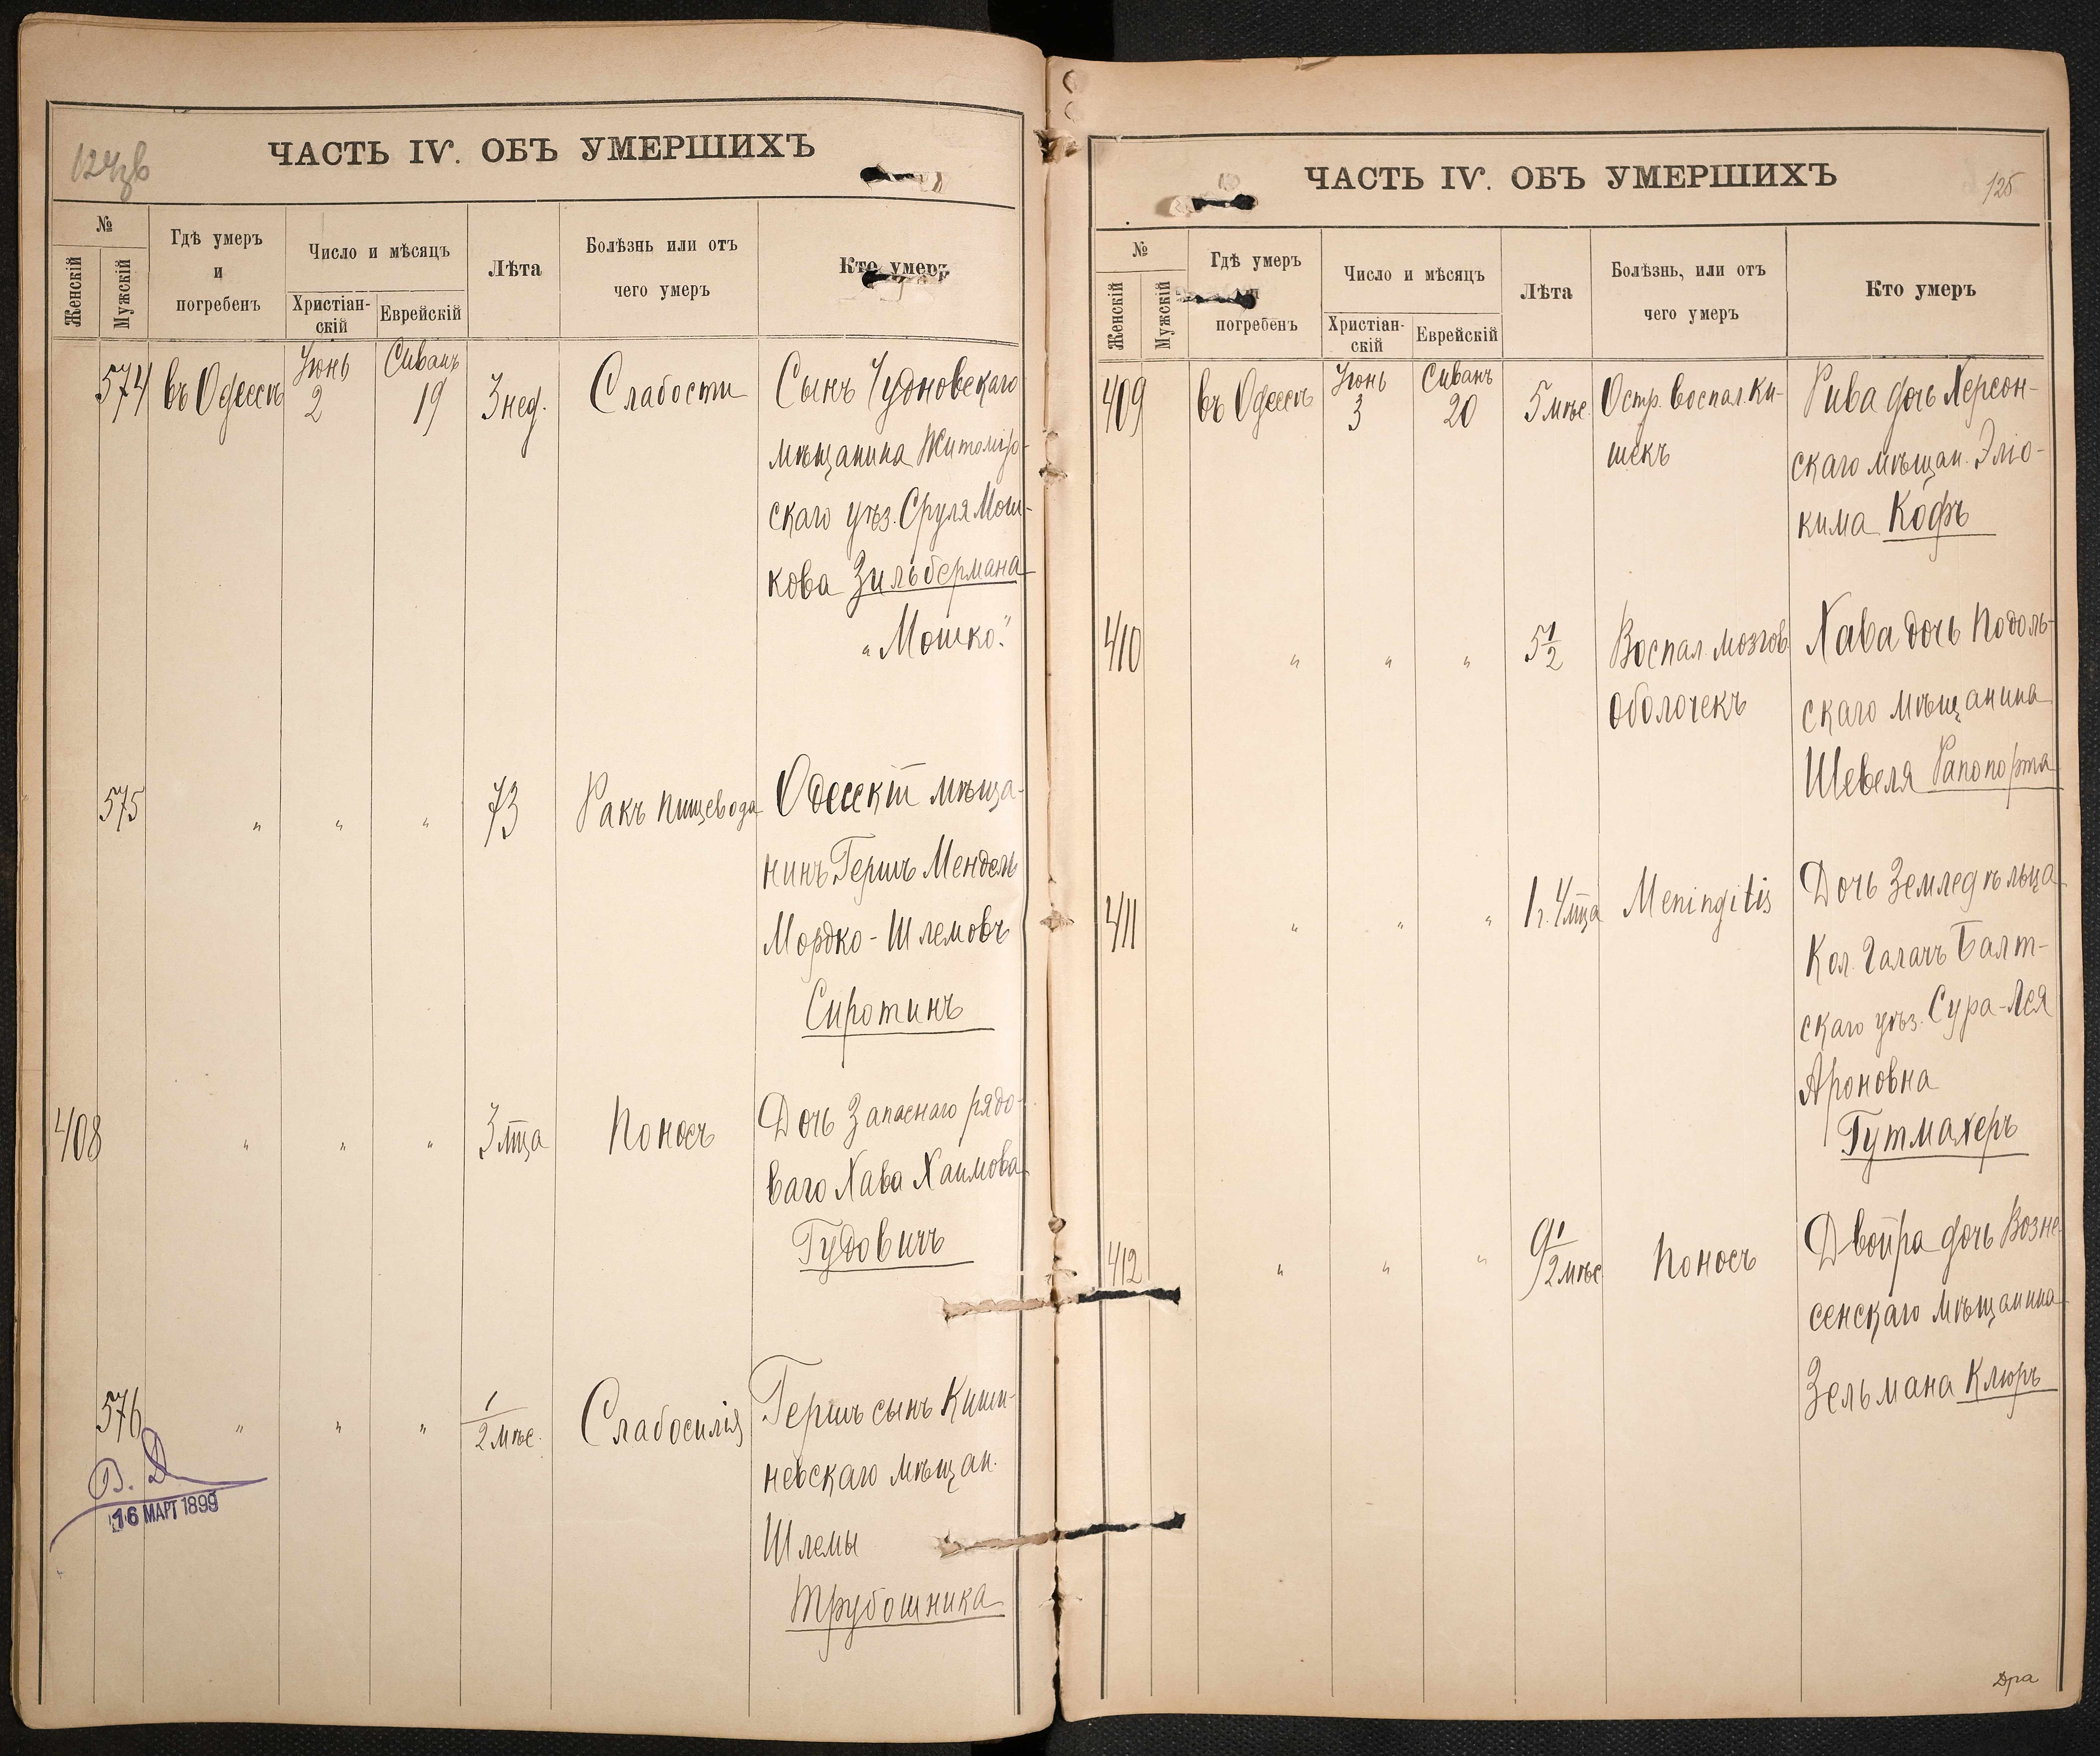 124об
ЧАСТЬ IV. ОБЪ УМЕРШИХЪ
№
Женскій
Мужскій
Гдѣ умеръ
и
погребенъ
Число и мѣсяцъ
Христіан-
скій
Еврейскій
Лѣта
Болѣзнь или отъ
чего умеръ
Кто умеръ
574 въ Одессѣ Іюнь 2 Сиванъ 19 3 нед. Слабости Сынъ Чудновскаго
мѣщанина Житомир-
скаго уѣз. Сруля Мош-
кова Зильбермана
„Мошко."
575 „ „ „ 73 Ракъ пищевода Одесскій мѣща-
нинъ Гершъ Мендель
Мордко-Шлемовъ
Сиротинъ
408 „ „ „ 3 мца Поносъ Дочь Запаснаго рядо-
ваго Хава Хаимова
Гудовичъ
576 „ „ „ 1/2 мѣс. Слабосилія Гершъ сынъ Киши-
невскаго мѣщан.
Шлемы
Трубошника
16 МАРТ 1899
ЧАСТЬ IV. ОБЪ УМЕРШИХЪ
125
№
Женскій
Мужскій
Гдѣ умеръ
и
погребенъ
Число и мѣсяцъ
Христіан-
скій
Еврейскій
Лѣта
Болѣзнь, или отъ
чего умеръ
Кто умеръ
409 въ Одессѣ Іюнь 3 Сиванъ 20 5 мѣс. Остр. воспал. ки- Рива дочь Херсон-
шекъ скаго мѣщан. Эліо-
кима Кофъ
410 „ „ „ 5 1/2 Воспал. мозгов. Хава дочь Подоль-
оболочекъ скаго мѣщанина
Шевеля Рапопорта
411 „ „ „ 1 г. 4 мца Meningitis Дочь Земледѣльца
Кол. Галачъ Балт-
скаго уѣз. Сура-Лея
Ароновна
Гутмахеръ
412 „ „ „ 9 1/2 мѣс. Поносъ Двойра дочь Возне-
сенскаго мѣщанина
Зельмана Клюръ